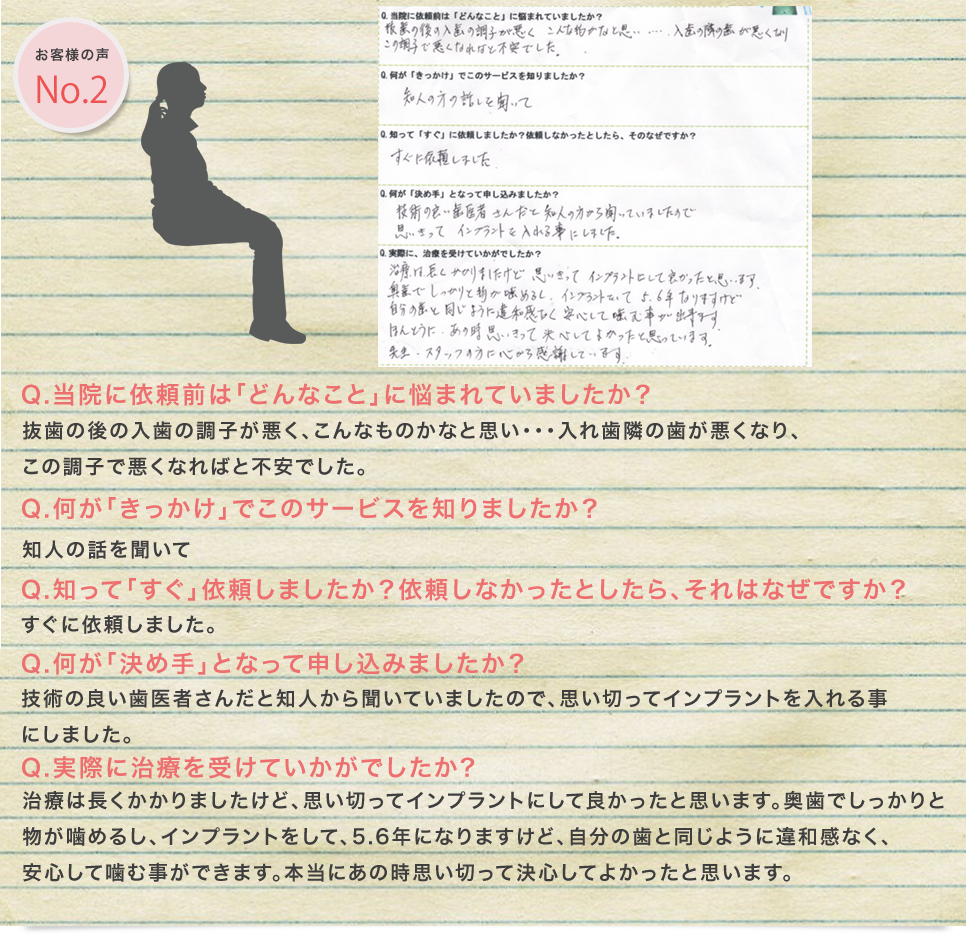 お客様の声
No.2
Q.当院に依頼前は「どんなこと」に悩まれていましたか？
抜歯の後の入歯の調子が悪く こんな物かなと思い…‥入歯の隣の歯が悪くなり
この調子で悪くなればと不安でした。
Q.何が「きっかけ」でこのサービスを知りましたか？
知人の方の話しを聞いて
Q.知って「すぐ」に依頼しましたか？依頼しなかったとしたら、そのなぜですか？
すぐに依頼しました。
Q.何が「決め手」となって申し込みましたか？
技術の良い歯医者さんだと知人の方から聞いていましたので
思いきって インプラントを入れる事にしました。
Q.実際に、治療を受けていかがでしたか？
治療は長くかかりましたけど 思いきって インプラントにして良かったと思います。
奥歯でしっかりと物が噛めるし、インプラントをして 5.6年なりますけど
自分の歯と同じように違和感なく安心して噛む事が出来ます
ほんとうに、あの時思いきって決心してよかったと思っています。
先生・スタッフの方に心から感謝しています。
Q.当院に依頼前は「どんなこと」に悩まれていましたか？
抜歯の後の入歯の調子が悪く、こんなものかなと思い・・・入れ歯隣の歯が悪くなり、
この調子で悪くなればと不安でした。
Q.何が「きっかけ」でこのサービスを知りましたか？
知人の話を聞いて
Q.知って「すぐ」依頼しましたか？依頼しなかったとしたら、それはなぜですか？
すぐに依頼しました。
Q.何が「決め手」となって申し込みましたか？
技術の良い歯医者さんだと知人から聞いていましたので、思い切ってインプラントを入れる事
にしました。
Q.実際に治療を受けていかがでしたか？
治療は長くかかりましたけど、思い切ってインプラントにして良かったと思います。奥歯でしっかりと
物が噛めるし、インプラントをして、5.6年になりますけど、自分の歯と同じように違和感なく、
安心して噛む事ができます。本当にあの時思い切って決心してよかったと思います。